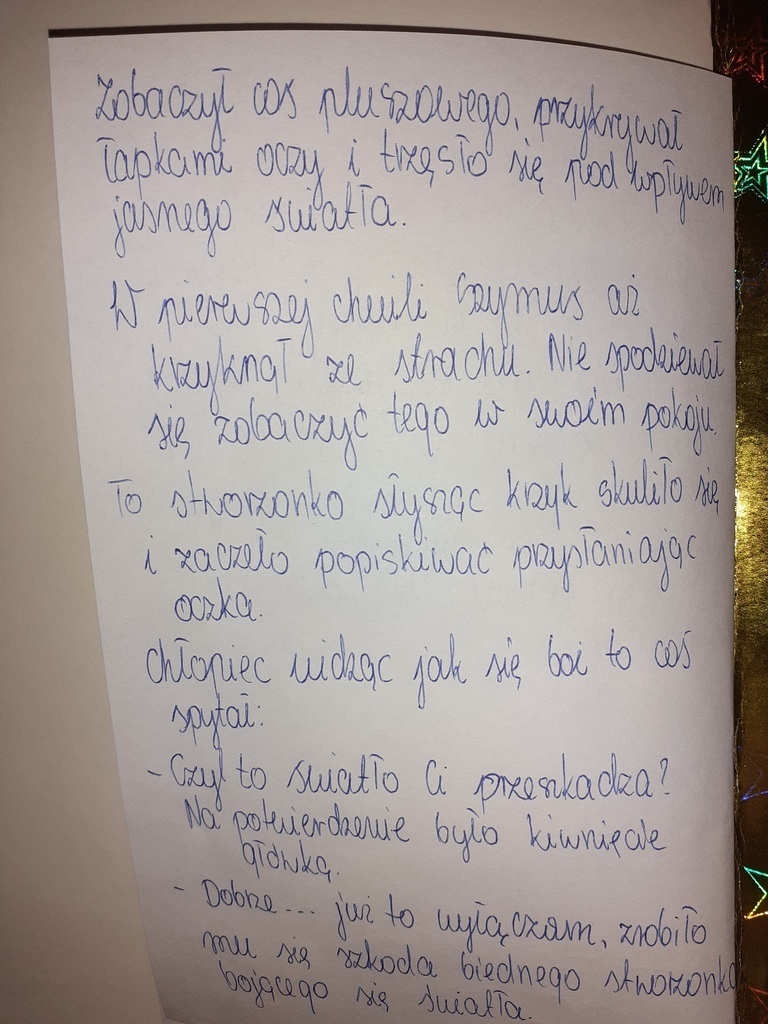 Zobaczył coś pluszowego, przykrywał
łapkami oczy i trzęsło się pod wpływem
jasnego światła.
W pierwszej chwili Szymuś aż
krzyknął ze strachu. Nie spodziewał
się zobaczyć tego w swoim pokoju.
To stworzonko słysząc krzyk skuliło się
i zaczęło popiskiwać przysłaniając
oczka.
Chłopiec widząc jak się boi to coś
spytał:
- Czy to światło Ci przeszkadza?
Na potwierdzenie było kiwnięcie
główką.
- Dobrze... już to wyłączam, zrobiło
mu się szkoda biednego stworzonka
bojącego się światła.